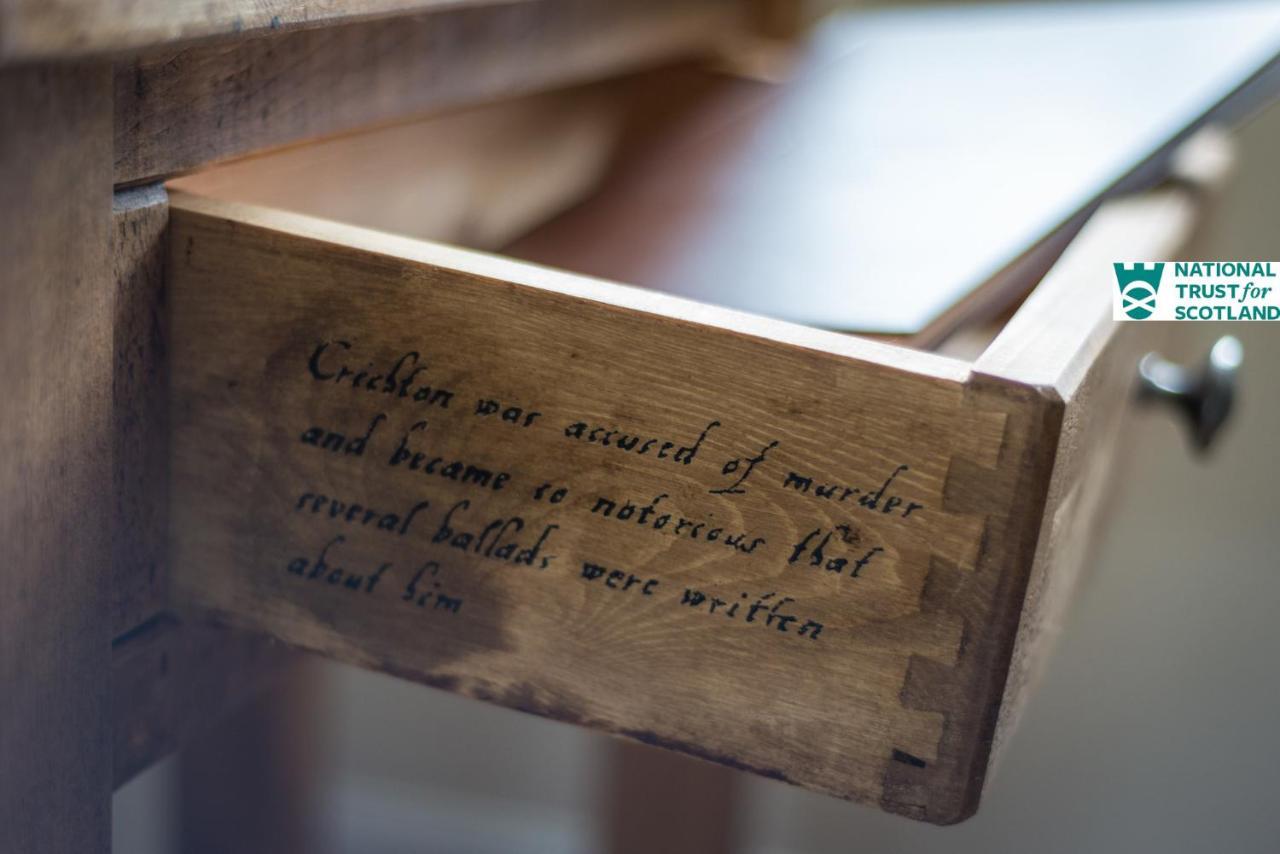 Crichton was accused of murder
and became so notorious that
several ballads were written
about him
NATIONAL
TRUST for
SCOTLAND